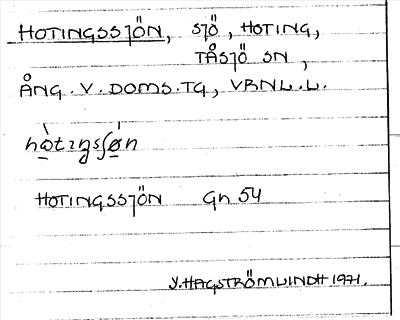 HOTINGSSJÖN, SJÖ, HOTING,
TÅSJÖ SN,
ÅNG. V. DOMS. TG, VBNL.L.
hòtıŋsʃø̀n
HOTINGSSJÖN Gn 54
Y. HAGSTRÖMLINDH 1971.